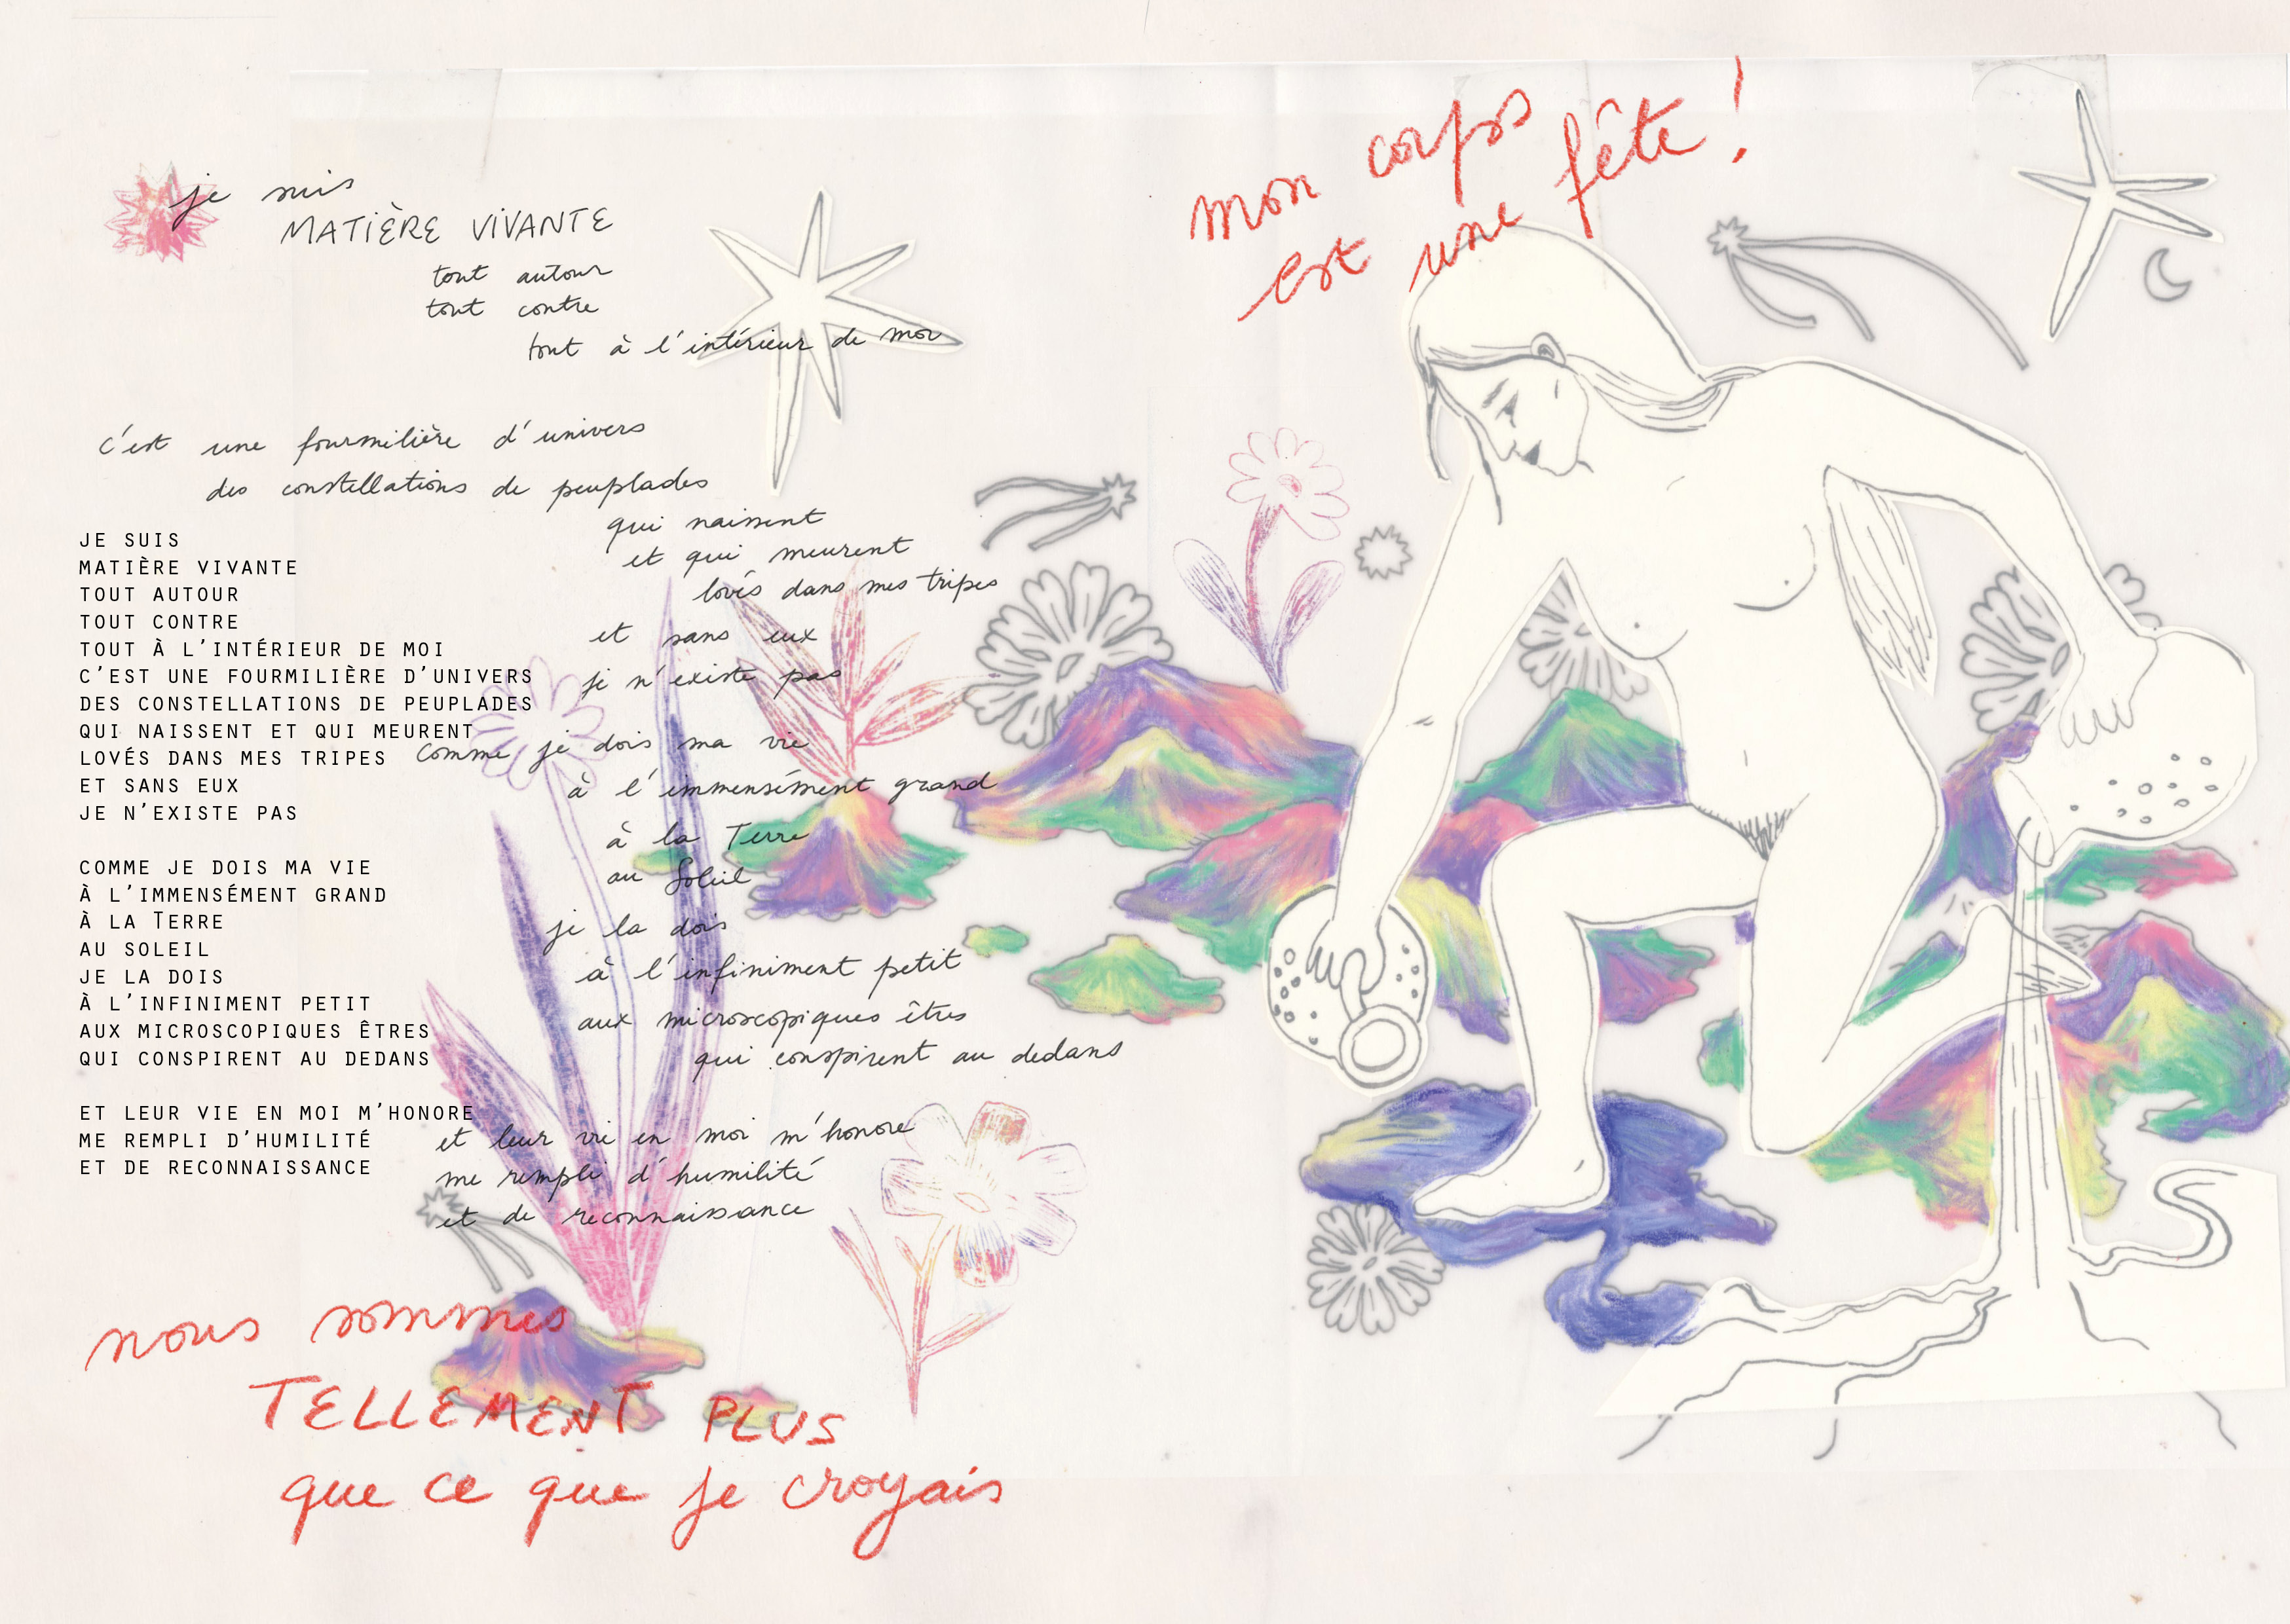 mon corps
est une fête !
je suis
MATIÈRE VIVANTE
tout autour
tout contre
tout à l'intérieur de moi
c'est une fourmilière d'univers
des constellations de peuplades
qui naissent
et qui meurent
lovés dans mes tripes
et sans eux
je n'existe pas
comme je dois ma vie
à l'immensément grand
à la Terre
au Soleil
je la dois
à l'infiniment petit
aux microscopiques êtres
qui conspirent au dedans
et leur vie en moi m'honore
me rempli d'humilité
et de reconnaissance
JE SUIS
MATIÈRE VIVANTE
TOUT AUTOUR
TOUT CONTRE
TOUT À L'INTÉRIEUR DE MOI
C'EST UNE FOURMILIÈRE D'UNIVERS
DES CONSTELLATIONS DE PEUPLADES
QUI NAISSENT ET QUI MEURENT
LOVÉS DANS MES TRIPES
ET SANS EUX
JE N'EXISTE PAS
COMME JE DOIS MA VIE
À L'IMMENSÉMENT GRAND
À LA TERRE
AU SOLEIL
JE LA DOIS
À L'INFINIMENT PETIT
AUX MICROSCOPIQUES ÊTRES
QUI CONSPIRENT AU DEDANS
ET LEUR VIE EN MOI M'HONORE
ME REMPLI D'HUMILITÉ
ET DE RECONNAISSANCE
nous sommes
TELLEMENT PLUS
que ce que je croyais